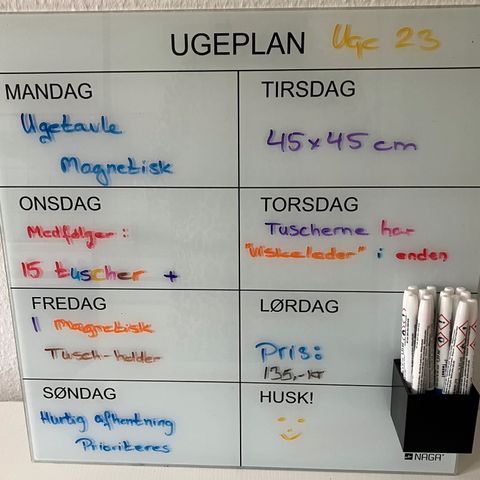 UGEPLAN Uge 23
MANDAG
Ugetavle
Magnetisk
TIRSDAG
45x45 cm
ONSDAG
Medfølger:
15 tuscher +
TORSDAG
Tuscherne har
"Viskelæder" i enden
FREDAG
1 magnetisk
Tusch-holder
LØRDAG
Pris:
135,-kr
SØNDAG
Hurtig afhentning
Prioriteres
HUSK!
NAGA